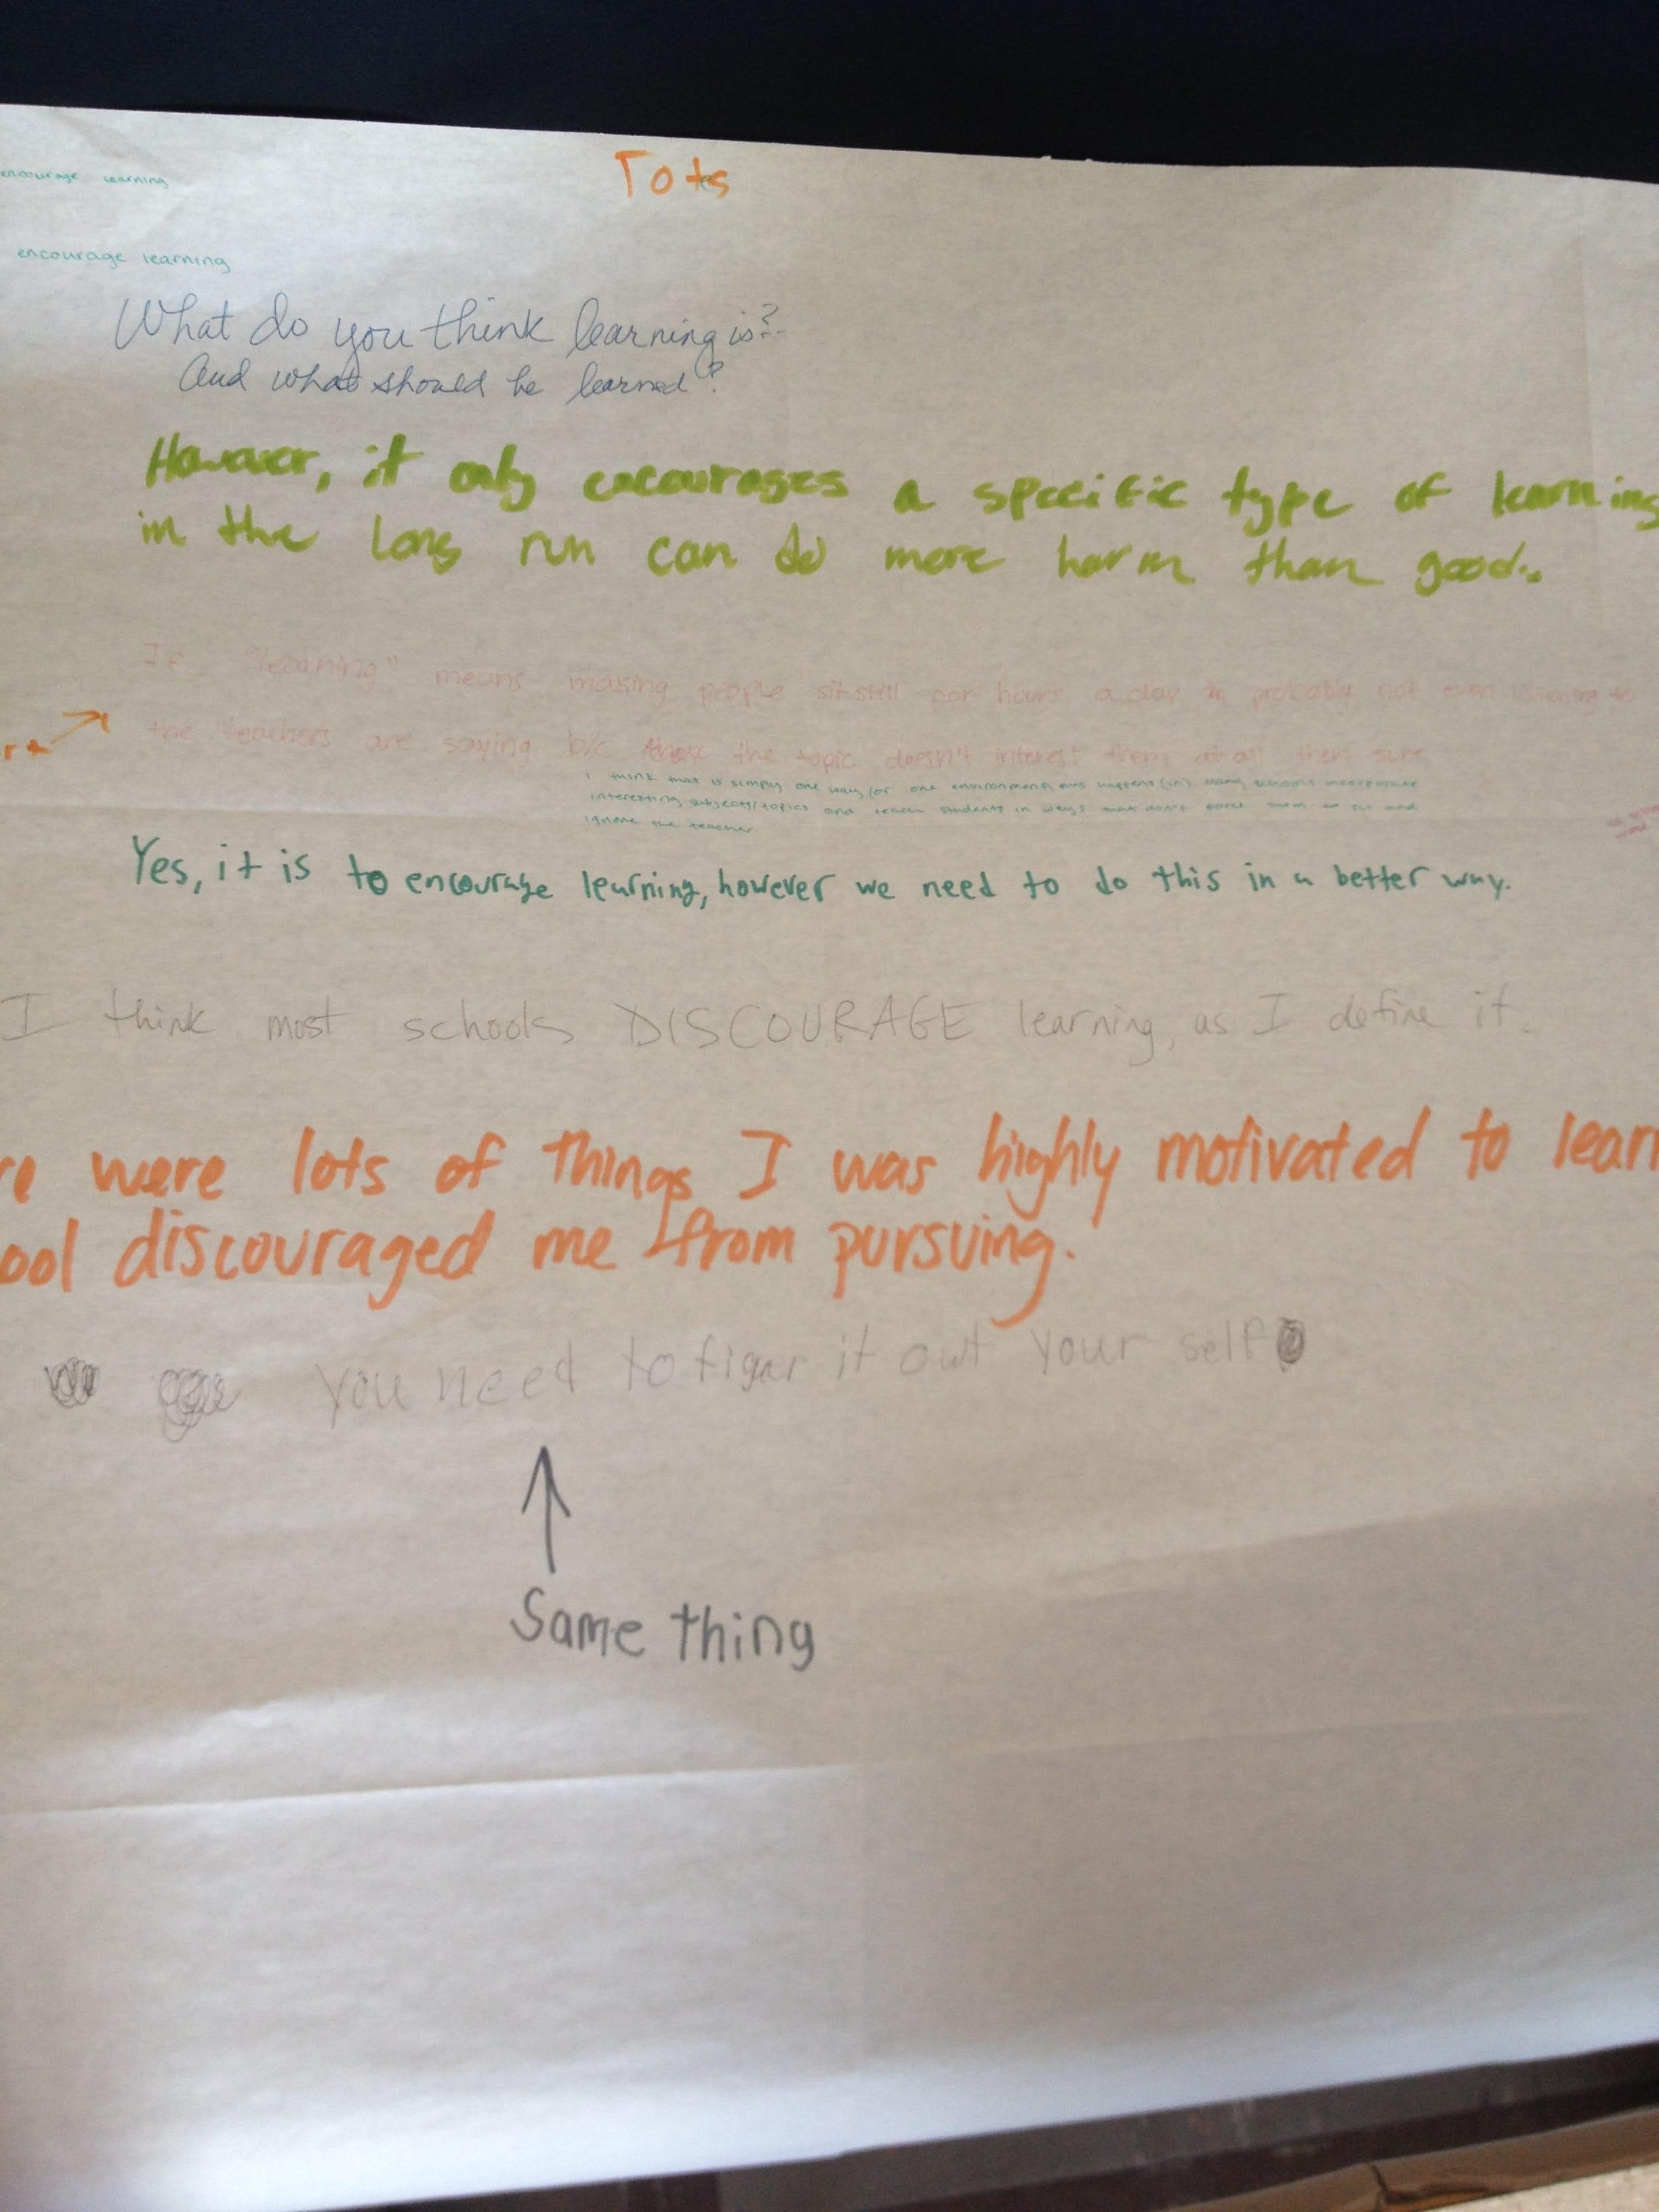 Tots
encourage learning
encourage learning
What do you think learning is?
And what should be learned?
However, it only encourages a specific type of learning
in the long run can do more harm than good.
If "learning" means making people sit still for hours a day probably not even listening to
the teachers are saying b/c the topic doesn't interest them at all then sure
I think that is simply one way (or one environment happens (in). Many schools incorporate
interesting subjects/topics and teach students in ways that don't force them to sit and
ignore the teacher
Yes, it is to encourage learning, however we need to do this in a better way.
I think most schools DISCOURAGE learning, as I define it.
re were lots of things I was highly motivated to learn
ool discouraged me from pursuing.
You need to figer it out your self
Same thing